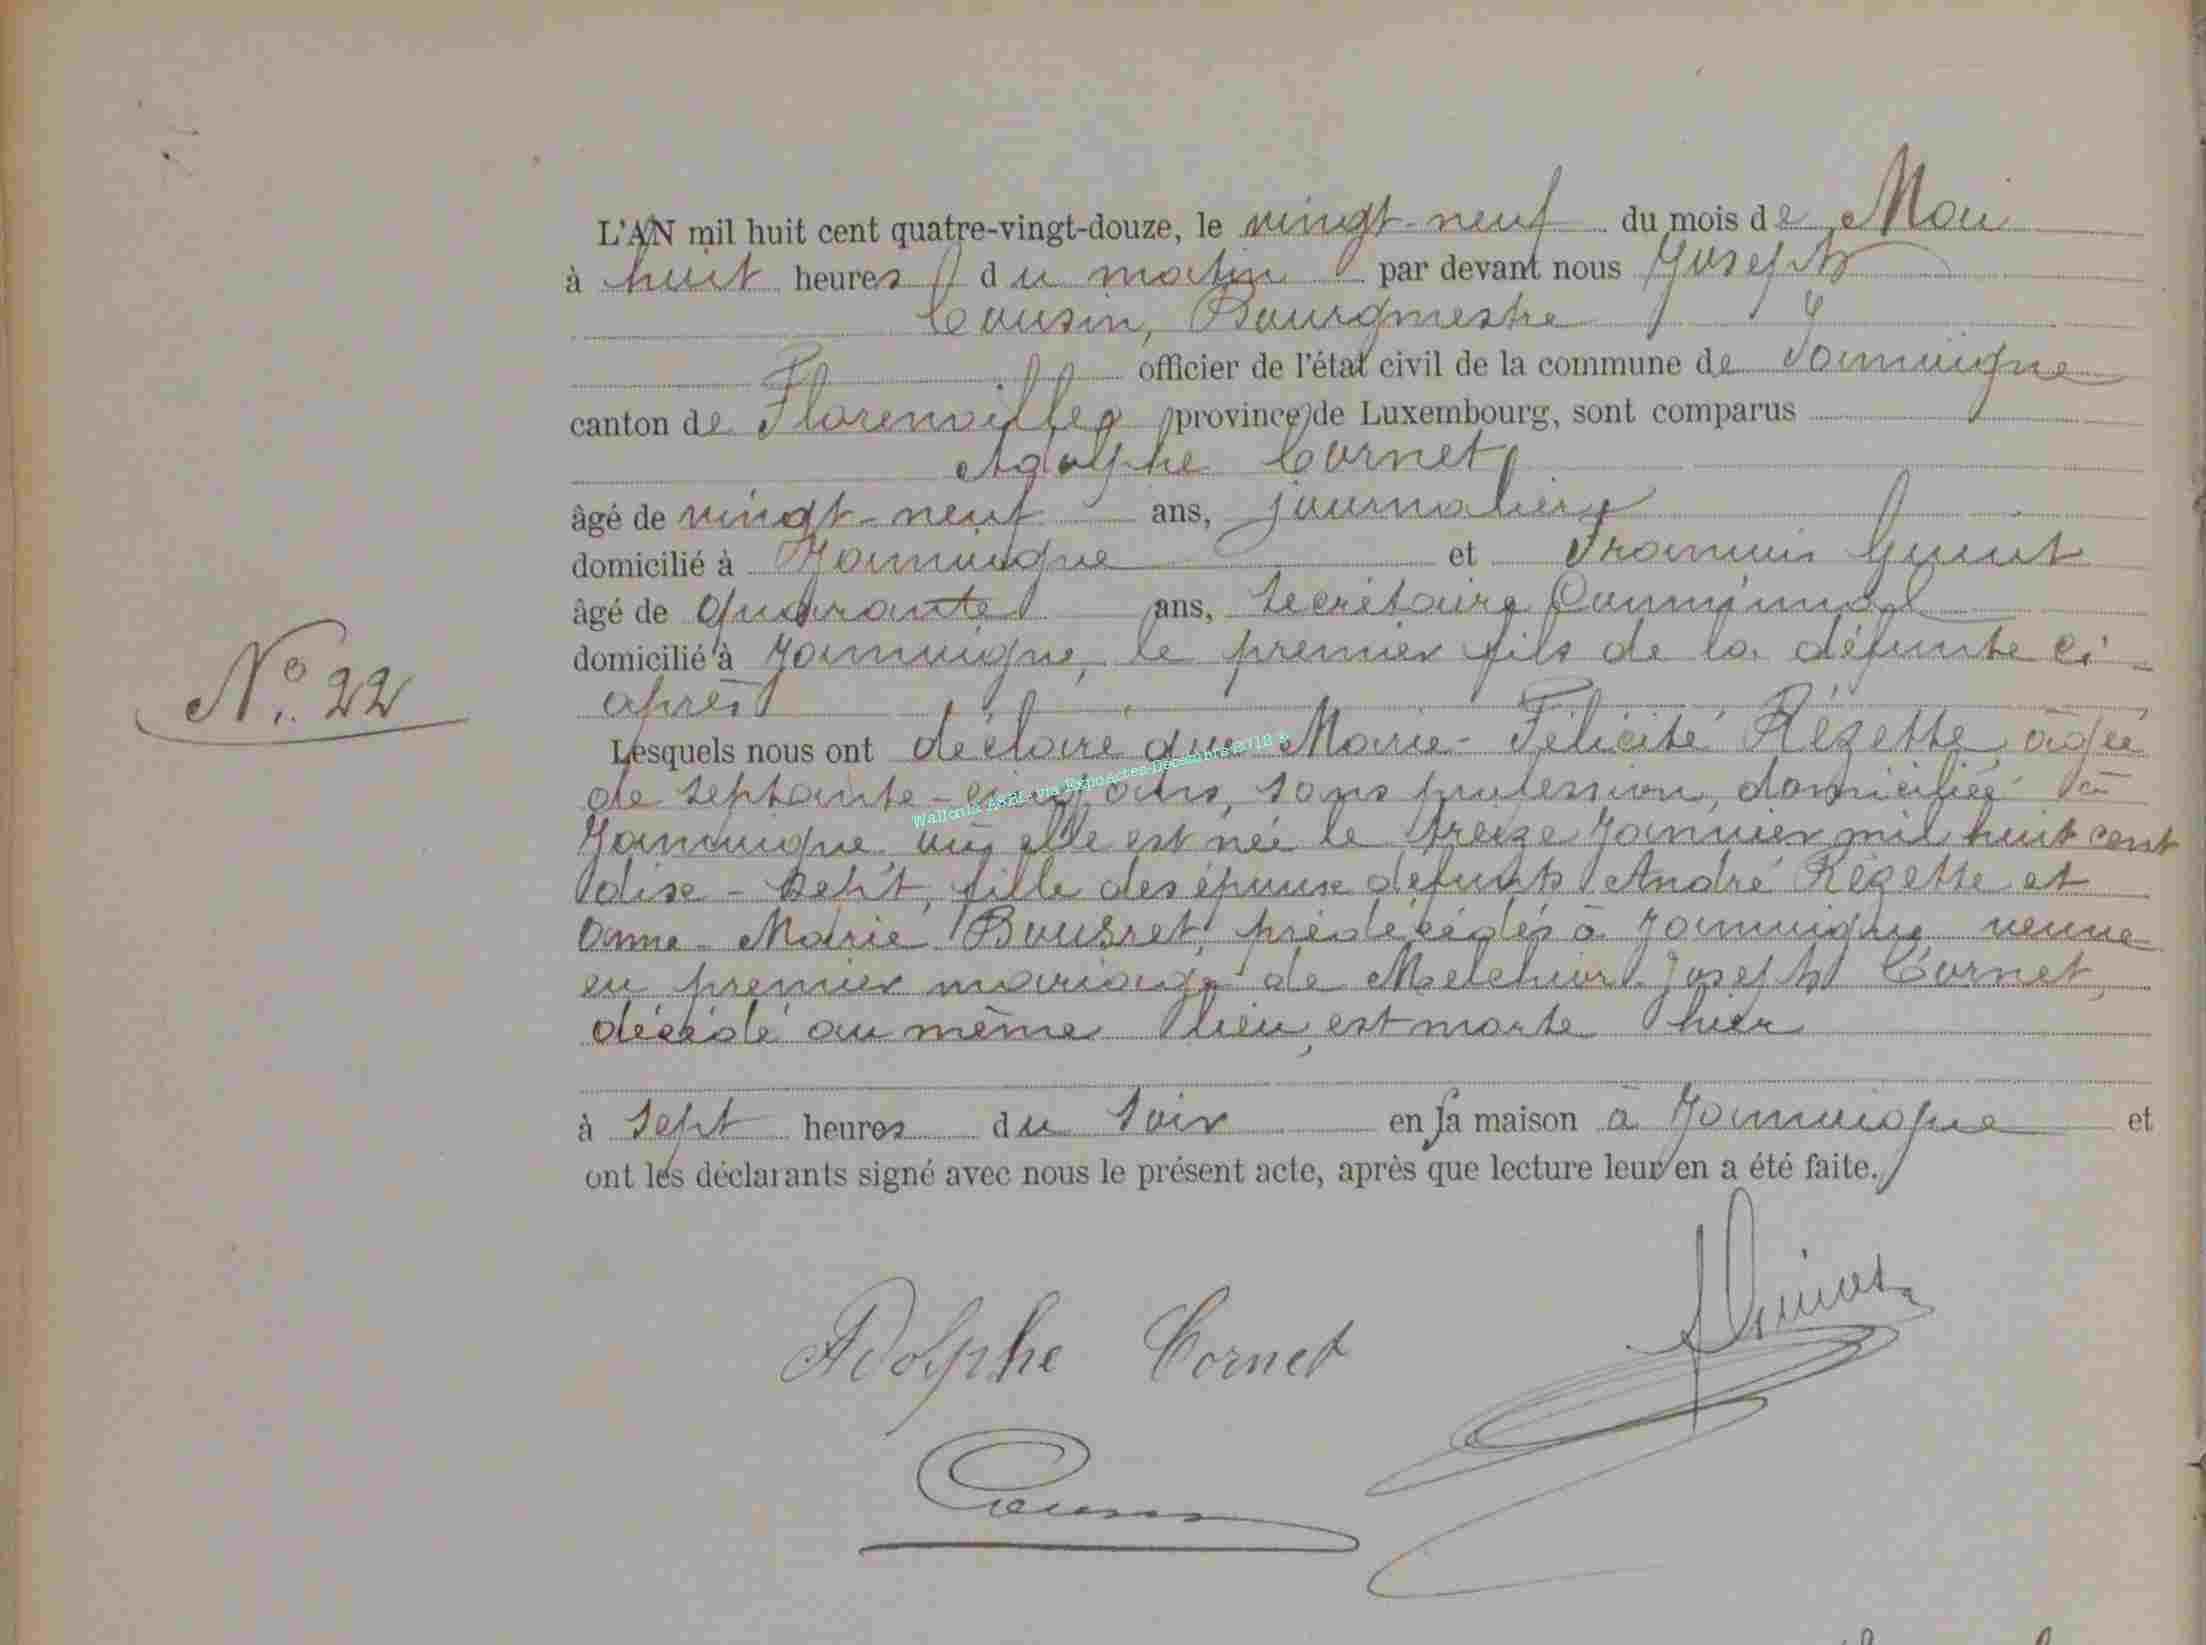 L'AN mil huit cent quatre-vingt-douze, le vingt-neuf du mois de Mai
à huit heures du matin par devant nous Joseph
Cousin, Bourgmestre
officier de l'état civil de la commune de Jamoigne
canton de Florenville, province de Luxembourg, sont comparus
Adolphe Cornet,
âgé de vingt-neuf ans, journalier
domicilié à Jamoigne et François
âgé de quarante ans, secrétaire Communal
domicilié à Jamoigne, le premier fils de la défunte ci-
après
N° 22
Lesquels nous ont déclaré que Marie-Félicité Rézette, âgée
de septante-cinq ans, sans profession, domiciliée à
Jamoigne, où elle est née le treize Janvier mil huit cent
dix-sept, fille des époux défunts André Rézette et
Anne-Marie Bousret, prédécédés à Jamoigne, veuve
en premier mariage de Melchior-Joseph Cornet,
décédé au même lieu, est morte hier
à sept heures du soir en sa maison à Jamoigne et
ont les déclarants signé avec nous le présent acte, après que lecture leur en a été faite.
Adolphe Cornet
Cousin
Wallonia ASBL via ExpoActes Décembre 2012